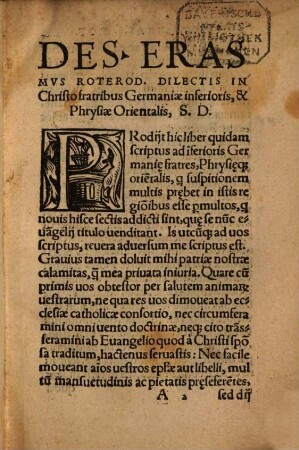 BAYERISCHE
STAATS-
BIBLIOTHEK
MÜNCHEN
DES. ERAS
MVS ROTEROD. DILECTIS IN
Christo fratribus Germaniæ inferioris, &
Phrysiæ Orientalis, S. D.
PRodijt hic liber quidam
scriptus ad ĩferioris Ger
manię fratres, Phrysięq;
oriẽtalis, q suspitionem
multis prębet in istis re
giõibus esse ꝑmultos, q
nouis hisce sectis addicti sint, quę se nũc e-
uãgelij titulo uenditant. Is utcũq; ad uos
scriptus, reuera aduersum me scriptus est.
Grauius tamen doluit mihi patriæ nostræ
calamitas, q̃ mea priuata iniuria. Quare cũ
primis uos obtestor per salutem animaꝝ
uestrarum, ne qua res uos dimoueat ab ec-
clesiæ catholicæ consortio, nec circumfera
mini omni uento doctrinæ, neq; cito trãs-
feramini ab Euangelio quod â Christi spõ
sa traditum, hactenus seruastis: Nec facile
moueant aĩos uestros epłæ aut libelli, mul
tũ mansuetudinis ac pietatis pręseferẽtes,
A 2 sed dij